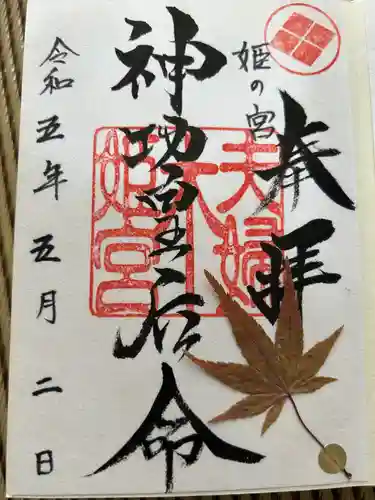 奉拝
姫の宮
神功皇后命
令和五年五月二日
夫婦
姫宮